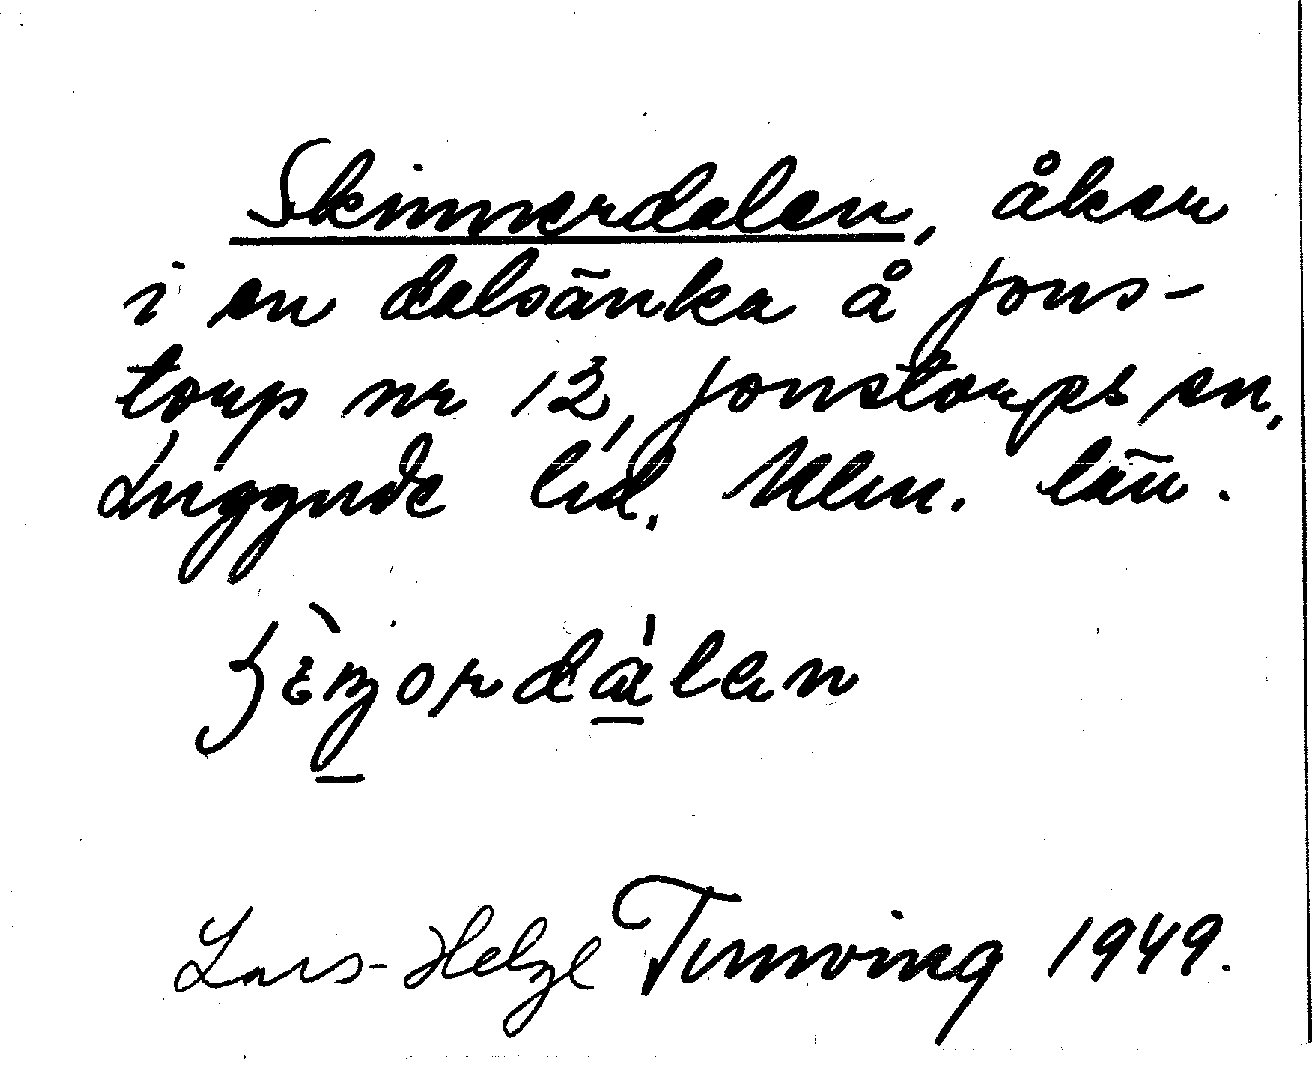 Skinnerdalen, åker
i en dalsänka å Jons-
torp nr 12, Jonstorps sn,
Luggude hd, Mlm. län.
Lars-Helge Tunving 1949.